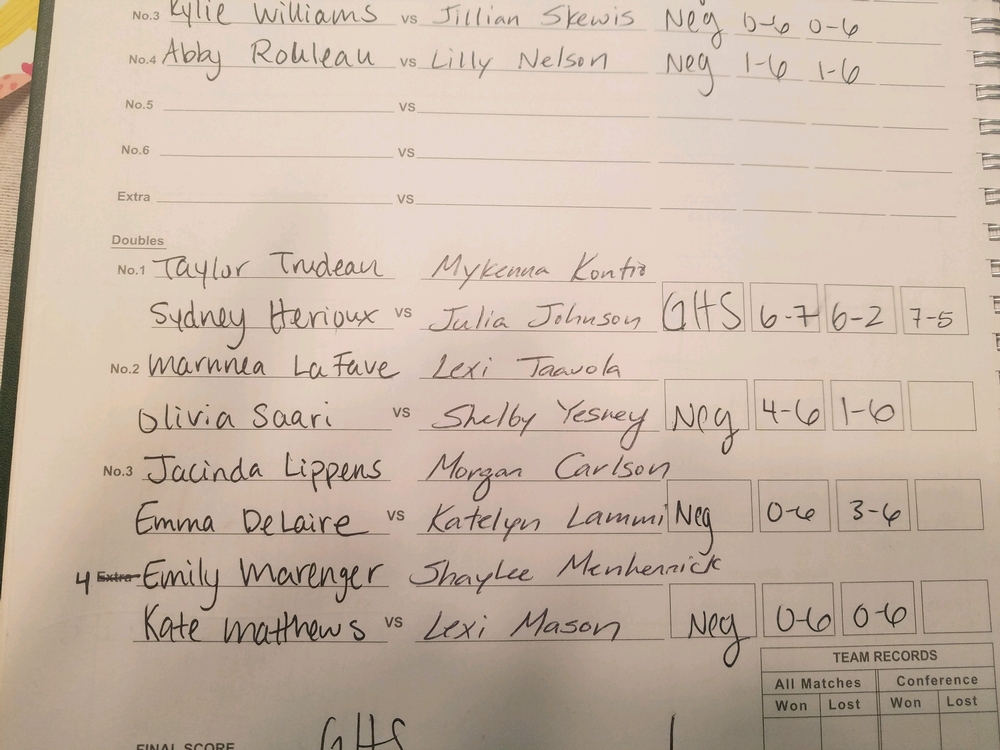 No.3 Kylie Williams vs Jillian Skewis Neg 0-6 0-6
No.4 Abby Rouleau vs Lilly Nelson Neg 1-6 1-6
No.5 vs
No.6 vs
Extra vs
Doubles
No.1 Taylor Trudeau Mykenna Kontio
Sydney Herioux vs Julia Johnson GHS 6-7 6-2 7-5
No.2 Marnnea LaFave Lexi Taavola
Olivia Saari vs Shelby Yesney Neg 4-6 1-6
No.3 Jacinda Lippens Morgan Carlson
Emma DeLaire vs Katelyn Lammi Neg 0-6 3-6
4 Extra Emily Marenger Shaylee Menhennick
Kate Matthews vs Lexi Mason Neg 0-6 0-6
TEAM RECORDS
All Matches Conference
Won Lost Won Lost
FINAL SCORE GHS 1